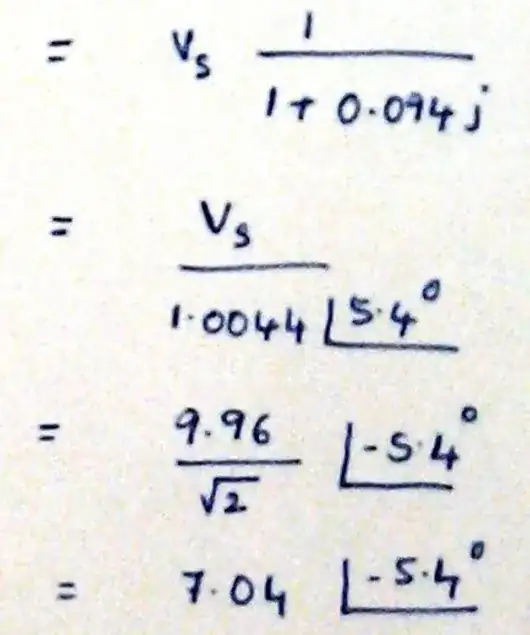 = Vs 1 / (1 + 0.094 j)
= Vs / (1.0044 ∠5.4°)
= 9.96 / √2 ∠-5.4°
= 7.04 ∠-5.4°